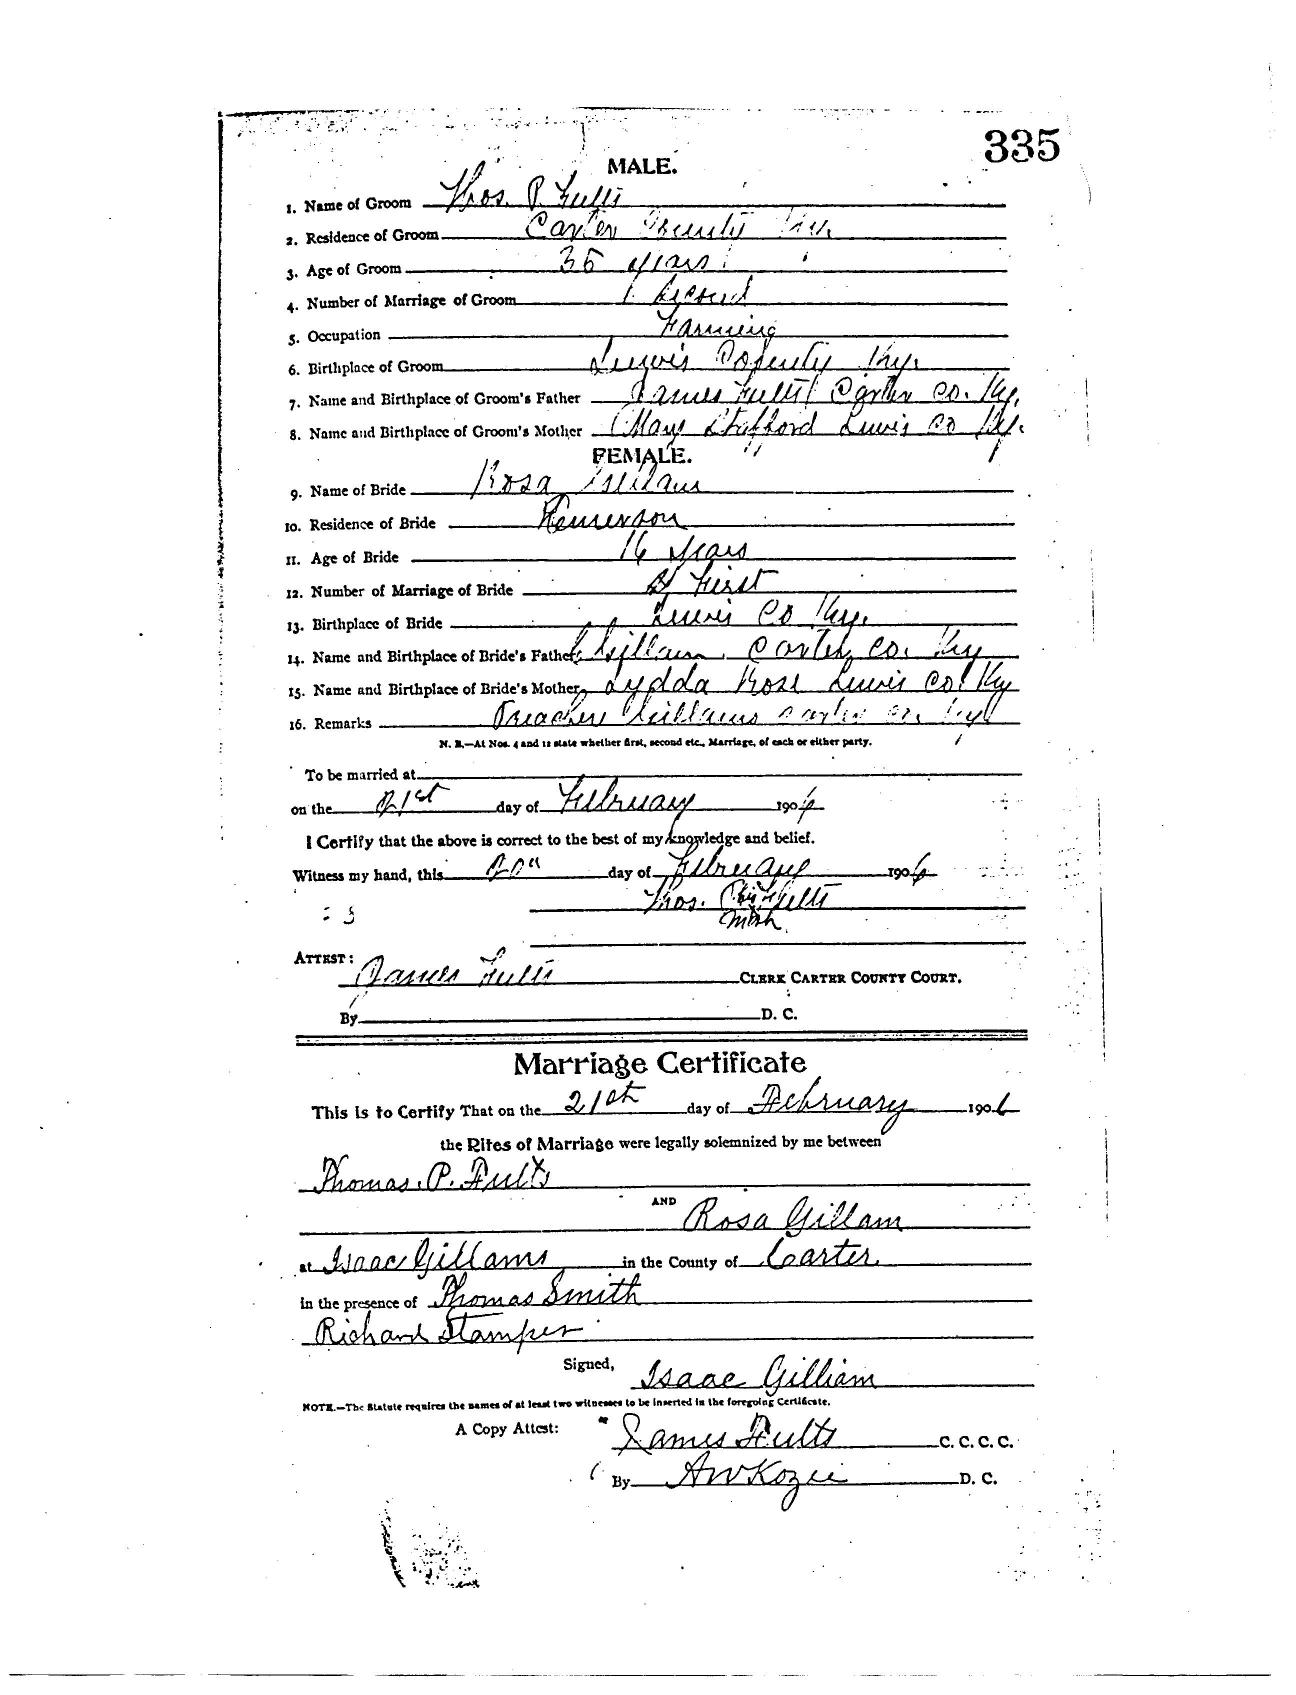 335
MALE.
1. Name of Groom Thos. P. Fults
2. Residence of Groom Carter County Ky.
3. Age of Groom 35 years
4. Number of Marriage of Groom Second
5. Occupation Farming
6. Birthplace of Groom Lewis County Ky.
7. Name and Birthplace of Groom's Father James Fults Carter Co. Ky.
8. Name and Birthplace of Groom's Mother Mary Stafford Lewis Co Ky.
FEMALE.
9. Name of Bride Rosa Gillam
10. Residence of Bride
11. Age of Bride 16 years
12. Number of Marriage of Bride First
13. Birthplace of Bride Lewis Co Ky.
14. Name and Birthplace of Bride's Father Gillam. Carter Co. Ky
15. Name and Birthplace of Bride's Mother Lydda Rose Lewis Co. Ky
16. Remarks Carter Co. Ky
N. B.—At Nos. 4 and 12 state whether first, second etc., Marriage, of each or either party.
To be married at
on the 21st day of February 1906
I Certify that the above is correct to the best of my knowledge and belief.
Witness my hand, this 20th day of February 1906
Thos. Fults
Mark
ATTEST: James Fults CLERK CARTER COUNTY COURT.
By D. C.
Marriage Certificate
This is to Certify That on the 21st day of February 1906
the Rites of Marriage were legally solemnized by me between
Thomas. P. Fults
AND Rosa Gillam
at Isaac Gillams in the County of Carter.
in the presence of Thomas Smith
Richard Stamper
Signed, Isaac Gilliam
NOTE.—The Statute requires the names of at least two witnesses to be inserted in the foregoing Certificate.
A Copy Attest: James Fults C. C. C. C.
By A W Kozee D. C.